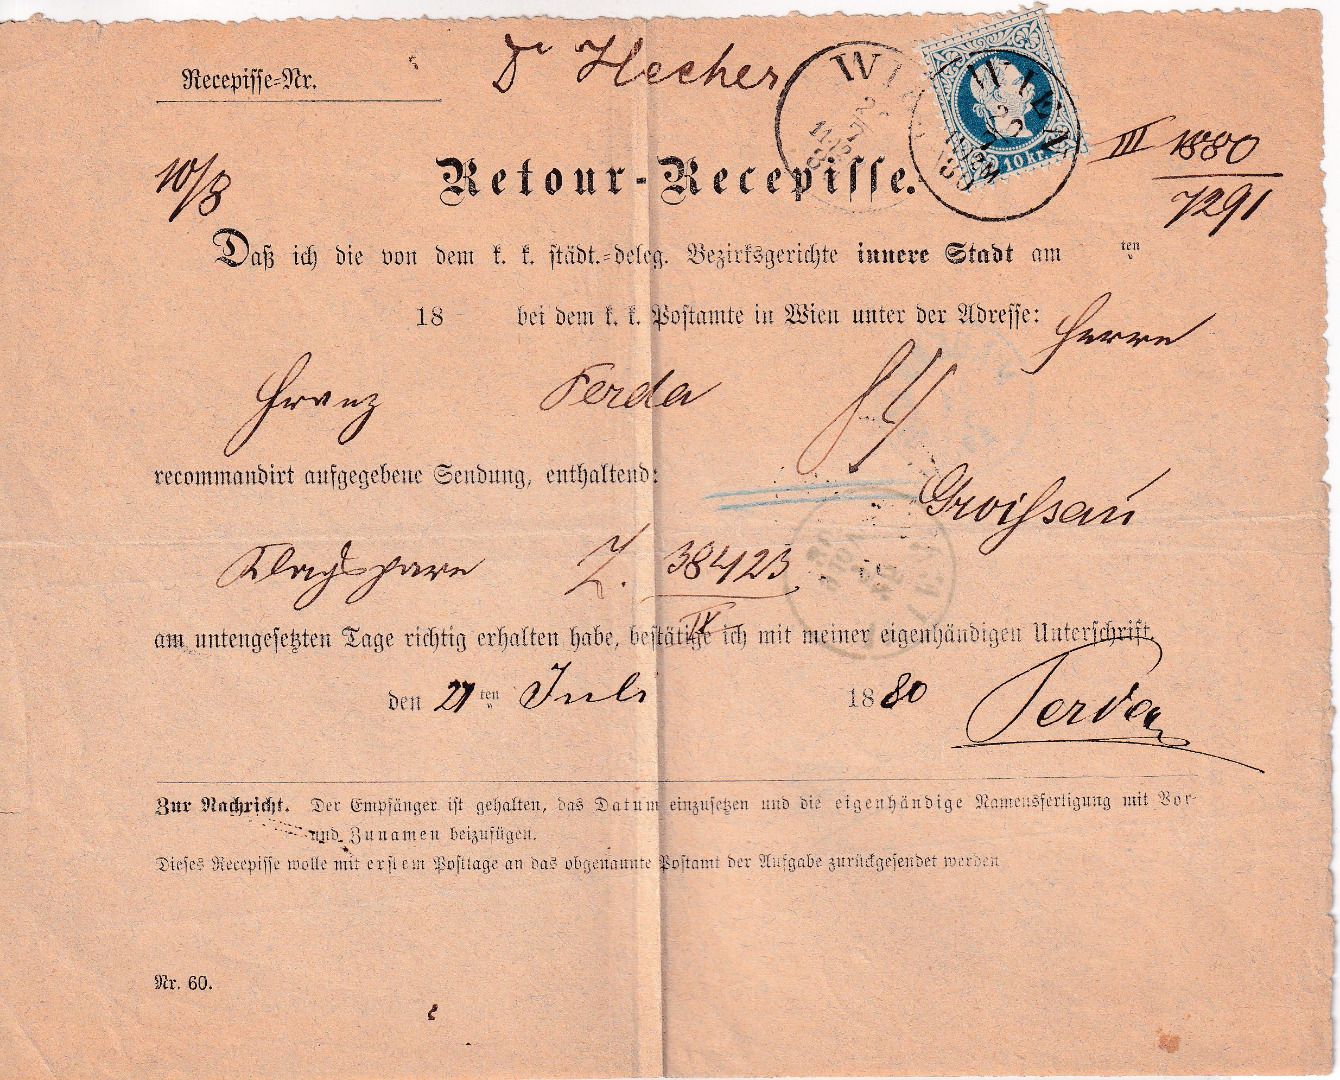 Dr Hecher
Recepisse-Nr.
WIEN
WIEN
10 kr.
III 1880
7291
10/8
Retour-Recepisse.
Daß ich die von dem k. k. städt.-deleg. Bezirksgerichte innere Stadt am ten
18 bei dem k. k. Postamte in Wien unter der Adresse: Herrn
Franz Ferda
recommandirt aufgegebene Sendung, enthaltend:
Z. 38423
IV
am untengesetzten Tage richtig erhalten habe, bestätige ich mit meiner eigenhändigen Unterschrift.
den 21ten Juli 1880 Ferda
Zur Nachricht. Der Empfänger ist gehalten, das Datum einzusetzen und die eigenhändige Namensfertigung mit Vor-
und Zunamen beizufügen.
Dieses Recepisse wolle mit erstem Posttage an das obgenannte Postamt der Aufgabe zurückgesendet werden
Nr. 60.